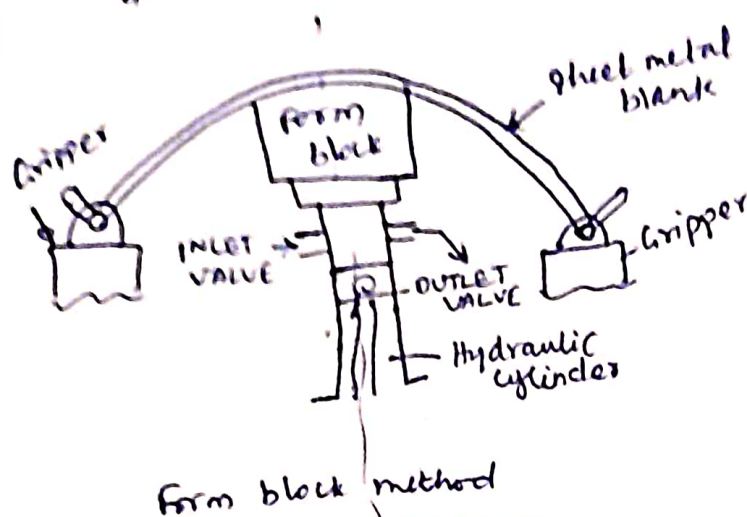 sheet metal
blank
Form
block
Gripper
INLET
VALVE
OUTLET
VALVE
Gripper
Hydraulic
cylinder
Form block method